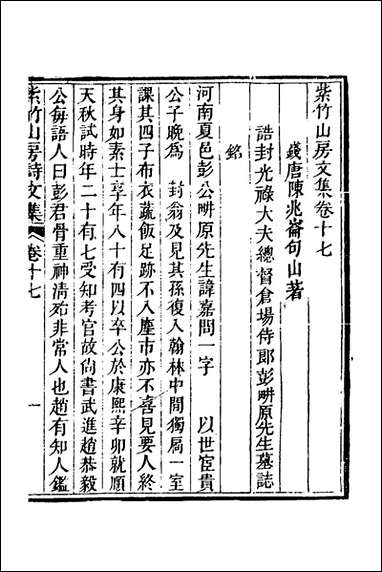 紫竹山房文集卷十七
錢唐陳兆崙句山著
誥封光祿大夫總督倉場侍郎彭畊原先生墓誌
銘
河南夏邑彭公畊原先生諱嘉問一字 以世宦貴
公子晚為 封翁及見其孫復入翰林中間獨扃一室
課其四子布衣蔬飯足跡不入塵市亦不喜見要人終
其身如素士享年八十有四以卒公於康熙辛卯就順
天秋試時年二十有七受知考官故尚書武進趙恭毅
公每語人曰彭君骨重神清殆非常人也趙有知人鑑
紫竹山房詩文集 卷十七 一